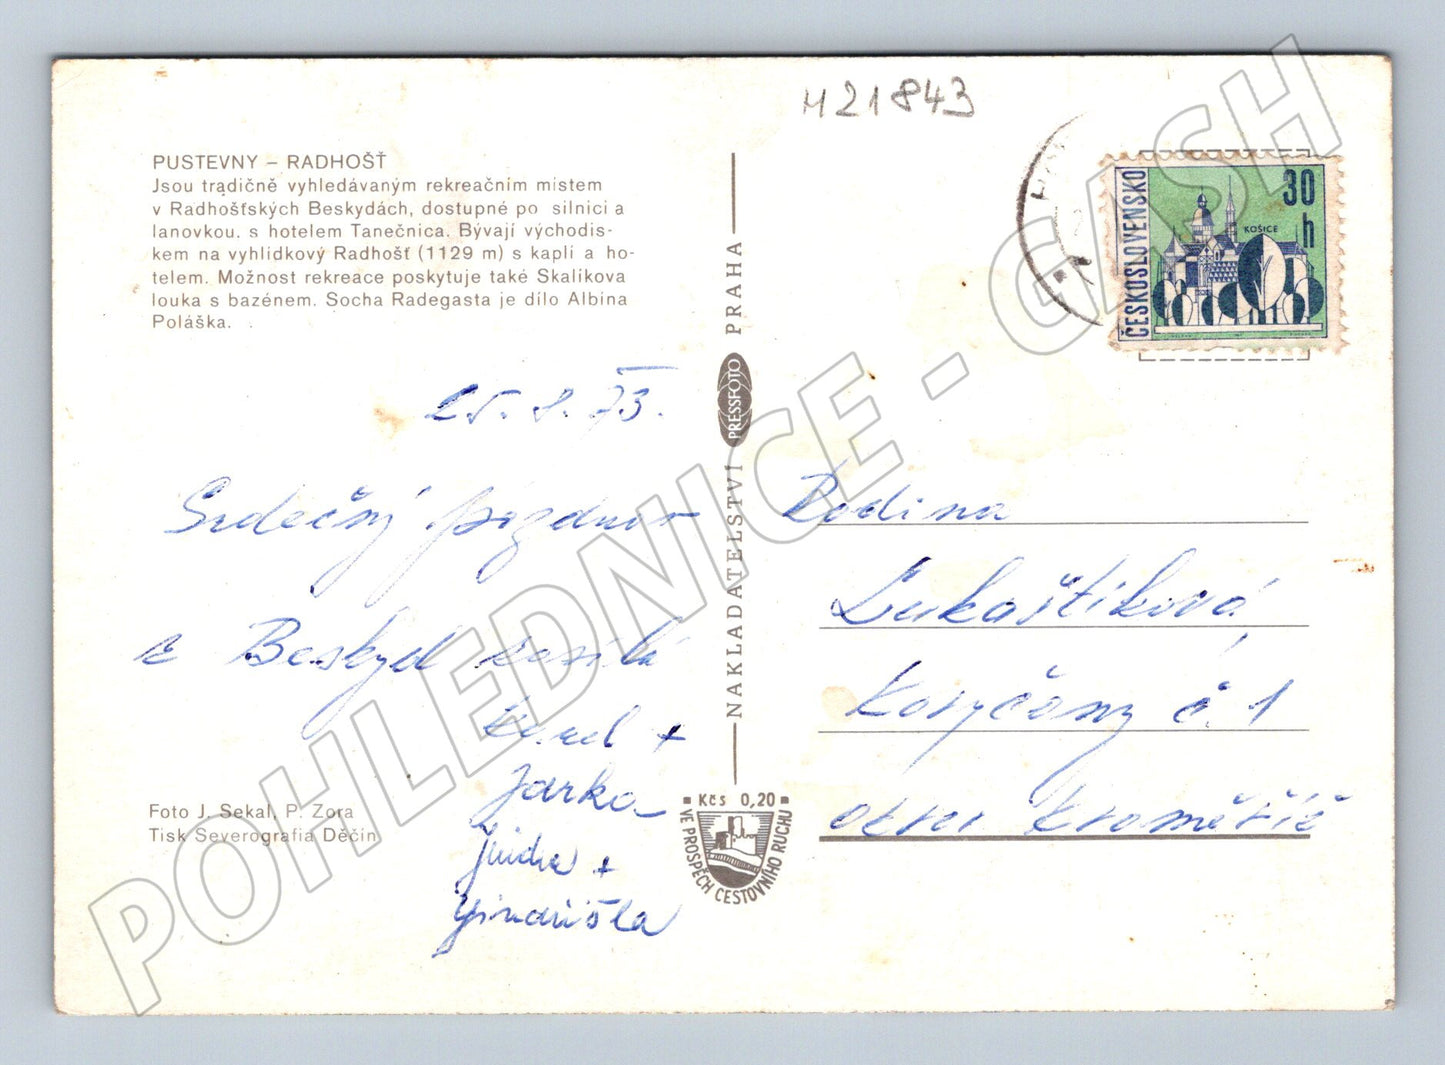 M21843
PUSTEVNY – RADHOŠŤ
Jsou tradičně vyhledávaným rekreačním místem
v Radhošťských Beskydách, dostupné po silnici a
lanovkou. s hotelem Tanečnica. Bývají východis-
kem na vyhlídkový Radhošť (1129 m) s kaplí a ho-
telem. Možnost rekreace poskytuje také Skalíkova
louka s bazénem. Socha Radegasta je dílo Albína
Poláška.
ČESKOSLOVENSKO
30
h
KOŠICE
25. 8. 73.
Srdečný pozdrav
z Beskyd zasílá
Karel +
Jarka
Jindra +
Jindřiška
NAKLADATELSTVÍ PRESSFOTO PRAHA
Rodina
Lukaštíková
Koryčany č. 1
okres Kroměříž
Foto J. Sekal, P. Zora
Tisk Severografia Děčín
Kčs 0,20
VE PROSPĚCH CESTOVNÍHO RUCHU
POHLEDNICE - GASH